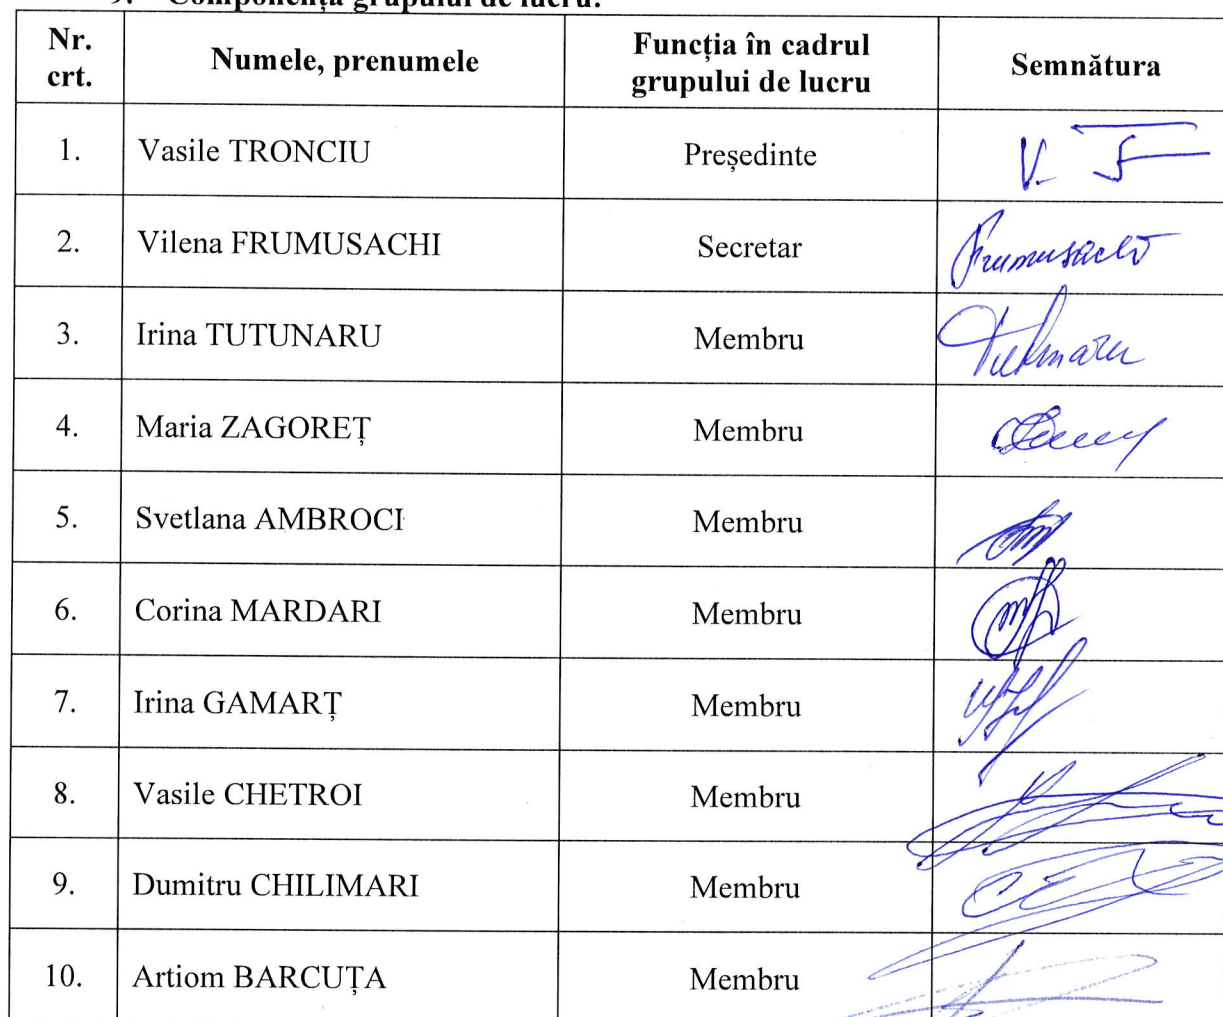 9. Componența grupului de lucru:
Nr. crt. Numele, prenumele Funcția în cadrul grupului de lucru Semnătura
1. Vasile TRONCIU Președinte
2. Vilena FRUMUSACHI Secretar Frumusachi
3. Irina TUTUNARU Membru Tutunaru
4. Maria ZAGOREȚ Membru
5. Svetlana AMBROCI Membru
6. Corina MARDARI Membru
7. Irina GAMARȚ Membru
8. Vasile CHETROI Membru
9. Dumitru CHILIMARI Membru
10. Artiom BARCUȚA Membru